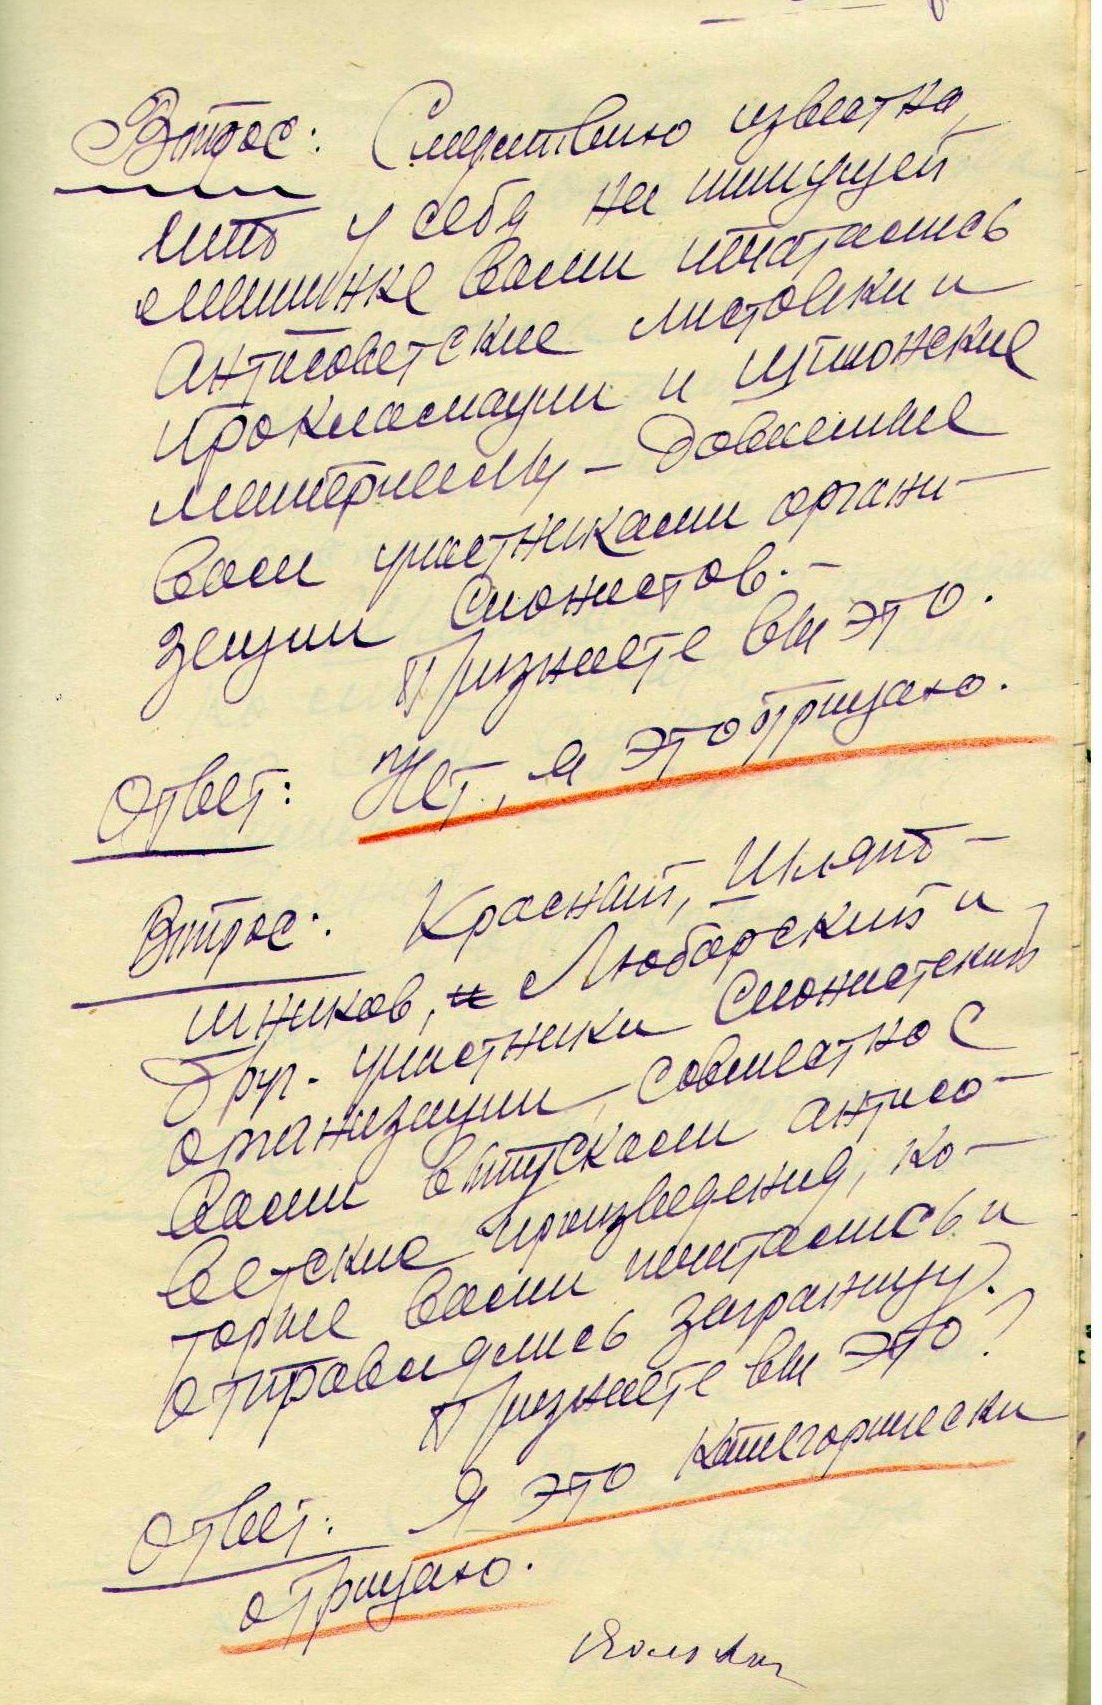 Вопрос: Следствию известно,
что у себя на пишущей
машинке вами печатались
антисоветские листовки и
прокламации и
материалы –
вам участниками органи-
зации сионистов. –
Признаете вы это.
Ответ: Нет, я это отрицаю.
Вопрос: Красный, Шляпо-
шников, и Любарский и
друг. участники сионистский
организации, совместно с
вами выпускали антисо-
ветские произведения, ко-
торые вами печатались и
отправлялись заграницу.
Признаете вы это?
Ответ: Я это категорически
отрицаю.